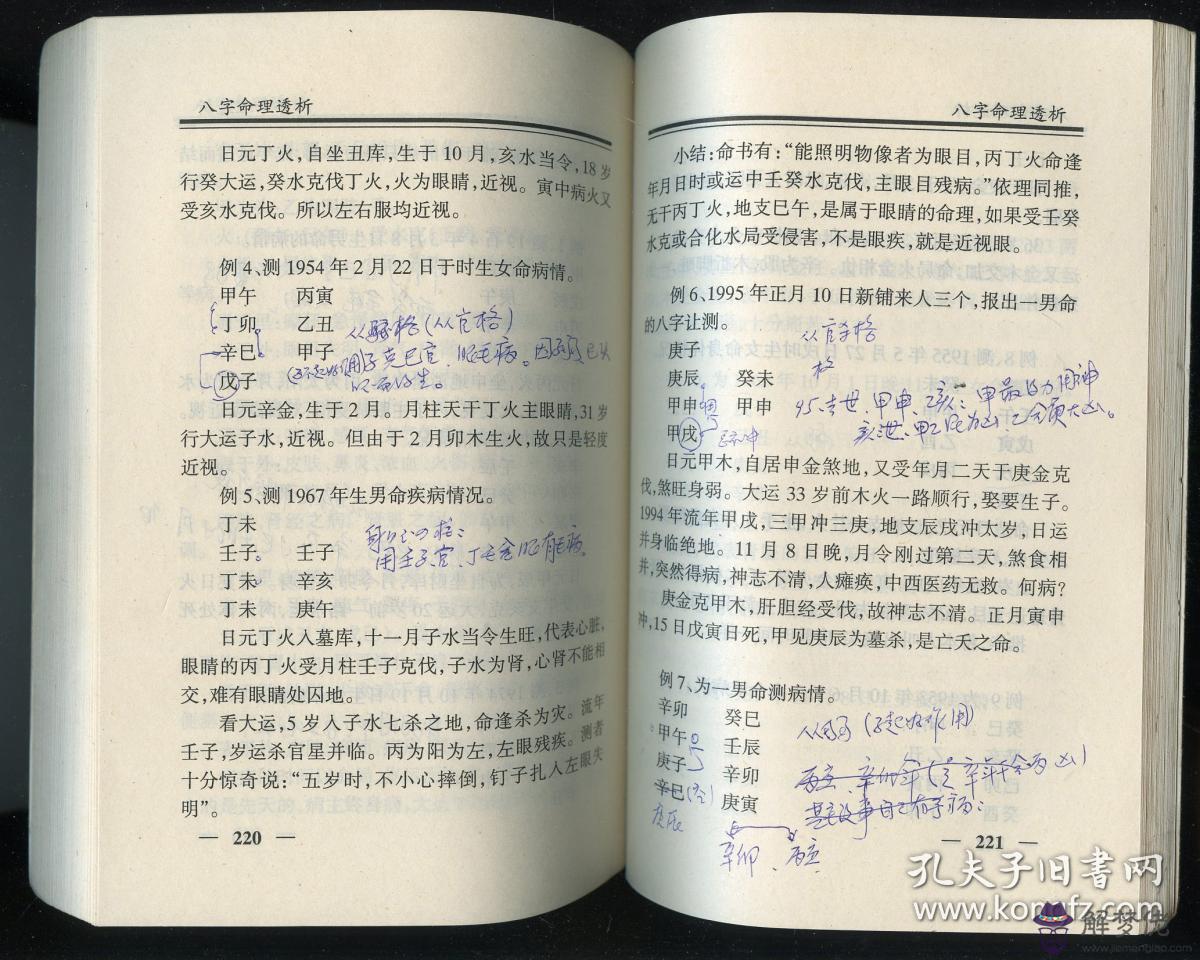 八字命理透析
日元丁火,自坐丑库,生于10月,亥水当令,18岁
行癸大运,癸水克伐丁火,火为眼睛,近视。寅中病火又
受亥水克伐。所以左右服均近视。
例4、测1954年2月22日于时生女命病情。
甲午 丙寅
丁卯 乙丑
辛巳 甲子
戊子
日元辛金,生于2月。月柱天干丁火主眼睛,31岁
行大运子水,近视。但由于2月卯木生火,故只是轻度
近视。
例5、测1967年生男命疾病情况。
丁未
壬子 壬子
丁未 辛亥
丁未 庚午
日元丁火人墓库,十一月子水当令生旺,代表心脏,
眼睛的丙丁火受月柱壬子克伐,子水为肾,心肾不能相
交,难有眼睛处囚地。
看大运,5岁人子水七杀之地,命逢杀为灾。流年
壬子,岁运杀官星并临。丙为阳为左,左眼残疾。测者
十分惊奇说:“五岁时,不小心摔倒,钉子扎人左眼失
明”。
— 220 —
八字命理透析
小结:命书有:“能照明物像者为眼目,丙丁火命逢
年月日时或运中壬癸水克伐,主眼目残病。”依理同推,
无干丙丁火,地支巳午,是属于眼睛的命理,如果受壬癸
水克或合化水局受侵害,不是眼疾,就是近视眼。
例6、1995年正月10日新铺来人三个,报出一男命
的八字让测。
从官杀格
庚子
格
庚辰 癸未
甲申 甲申
甲戌
日元甲木,自居申金煞地,又受年月二天于庚金克
伐,煞旺身弱。大运33岁前木火一路顺行,娶要生子。
1994年流年甲戌,三甲冲三庚,地支辰戌冲太岁,日运
并身临绝地。11月8日晚,月令刚过第三天,煞食相
并,突然得病,神志不清,人瘫痪,中西医药无救。何病?
庚金克甲木,肝胆经受伐,故神志不清。正月寅申
冲,15日戊寅日死,甲见庚辰为墓杀,是亡夭之命。
例7、为一男命测病情。
辛卯 癸巳
甲午 壬辰
庚子 辛卯
辛巳 庚寅
庚辰
辛卯、丙寅
— 221 —
孔夫子旧书网
www.kongfz.com
解梦佬
www.jiemenglao.com